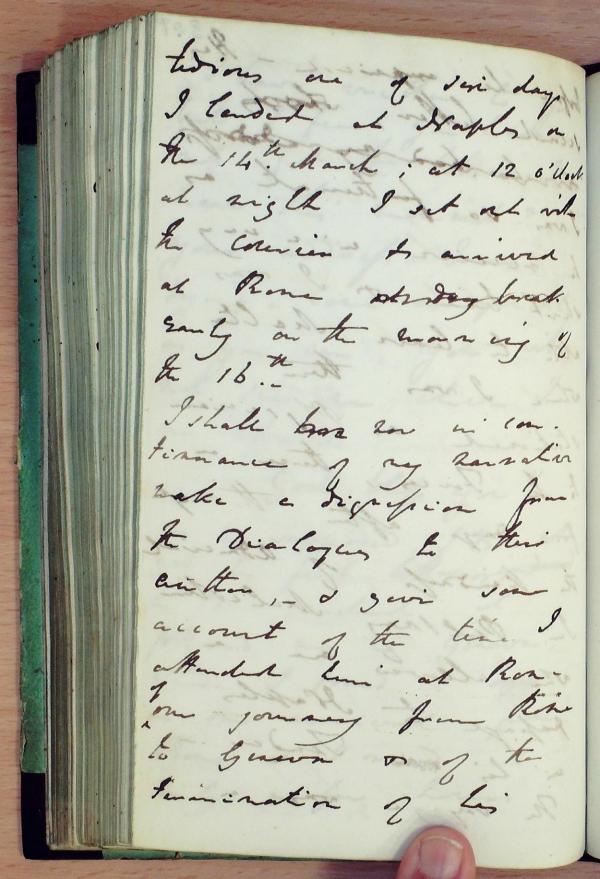 tedious one of six days
I landed at Naples on
the 14th. March; at 12 o'clock
at night I set out with
the Courier & arrived
at Rome at day break
early on the morning of
the 16.th
I shall now in con-
tinuance of my narrative
make a digression from
the Dialogues to their
author,- & give some
account of the time I
attended him at Rome
of our journey from Rome
to Geneva & of the
termination of his